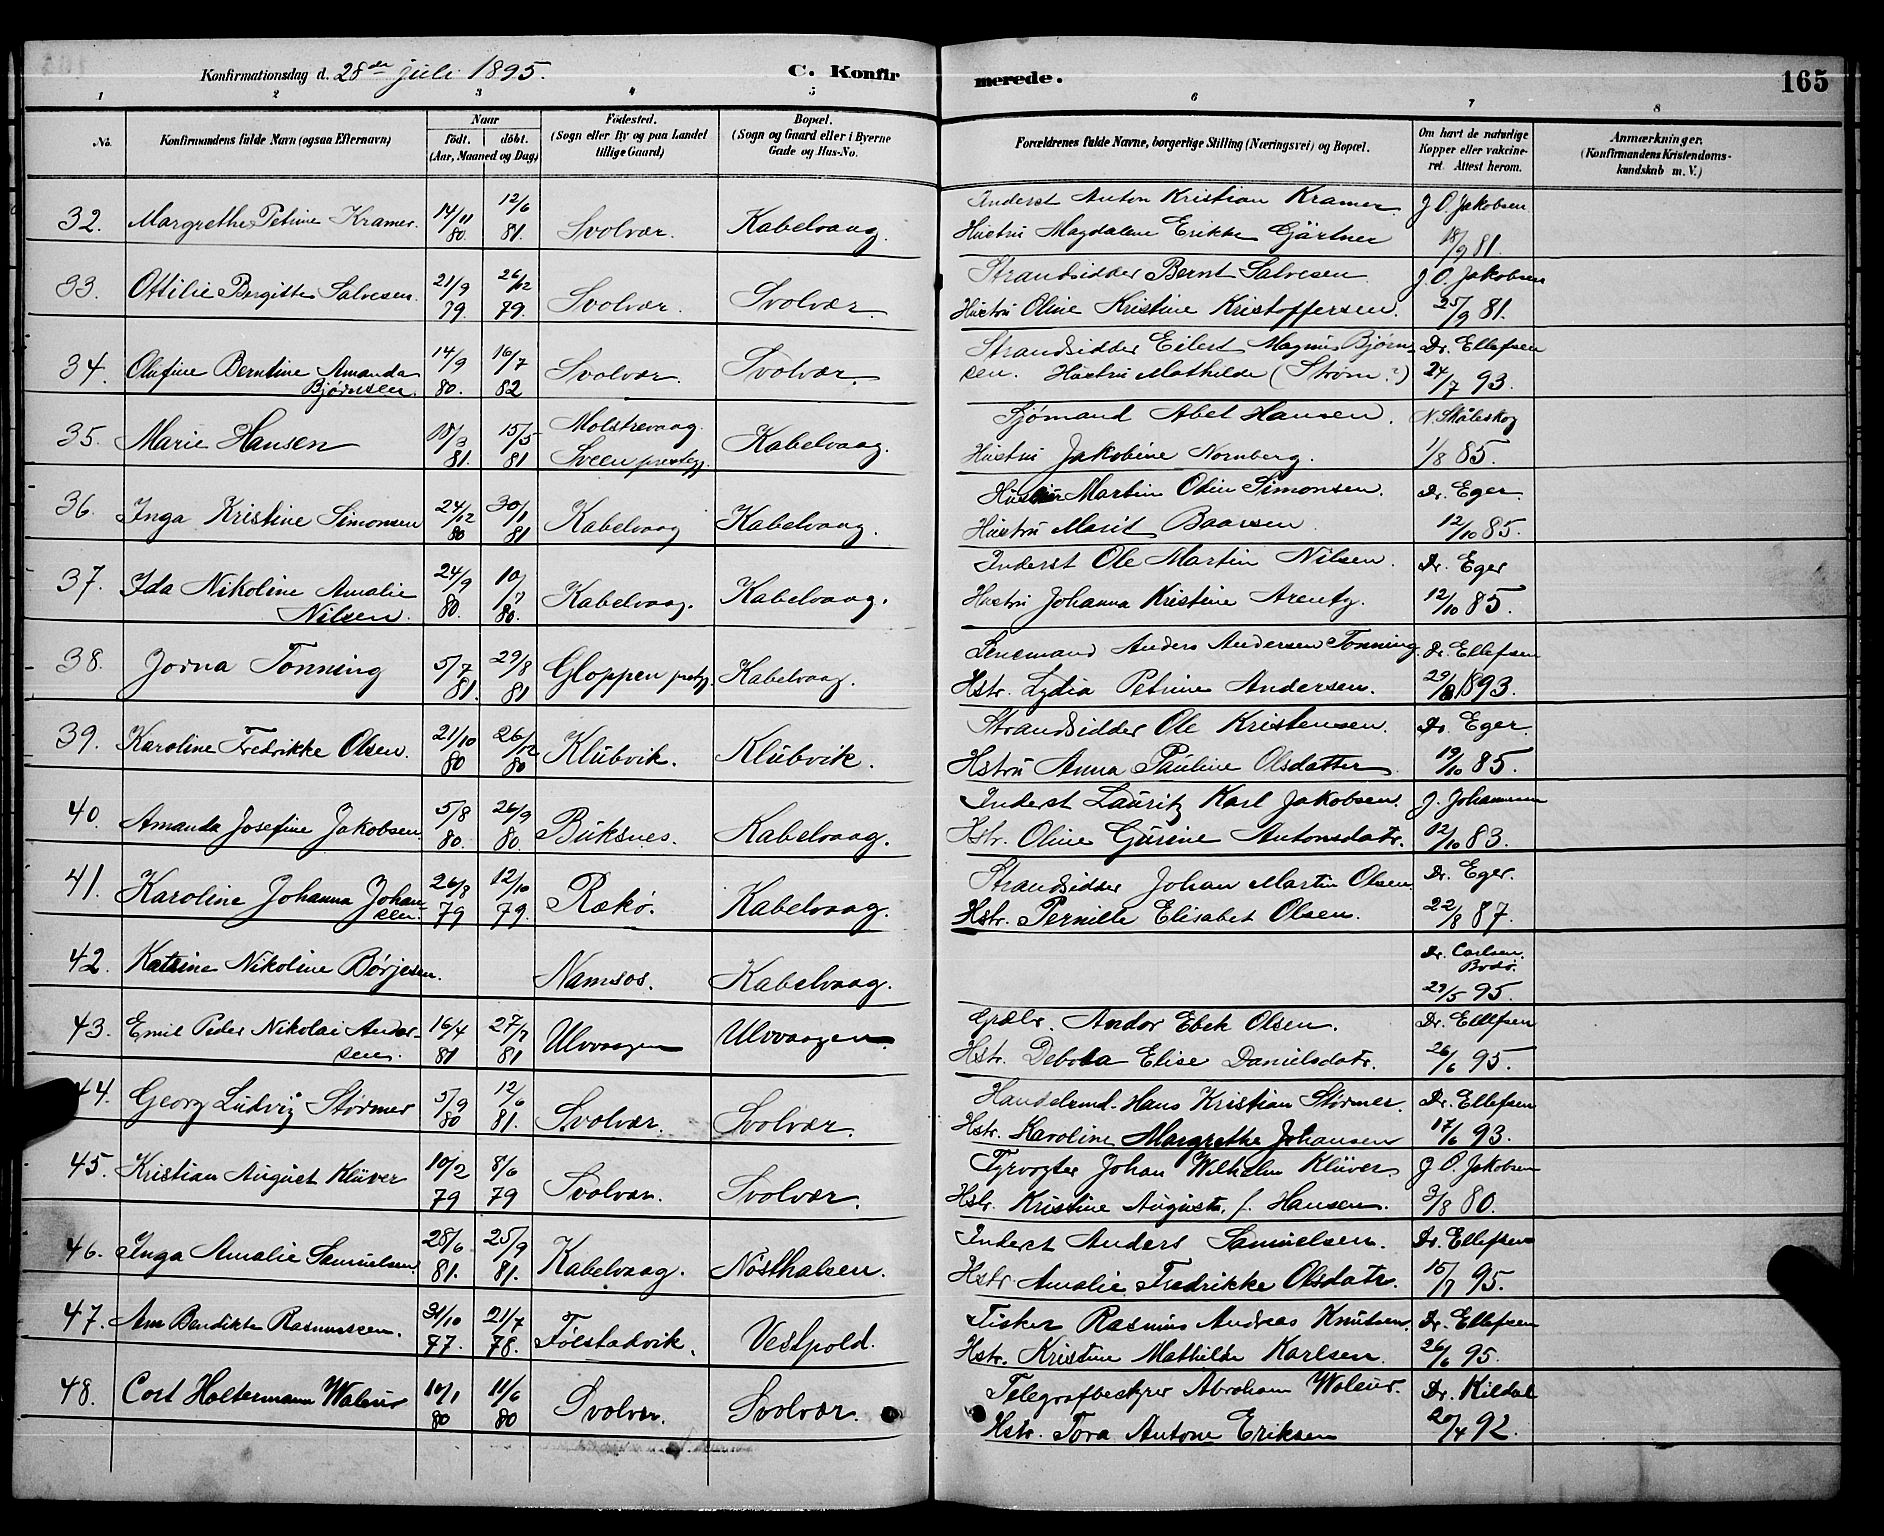 Konfirmationsdag d. 28de juli 1895. C. Konfirmerede. 165
1 2 3 4 5 6 7 8
No. Konfirmandens fulde Navn (ogsaa Efternavn) Naar Födt. döbt. (Aar, Maaned og Dag) Födested. (Sogn eller By og paa Landet tillige Gaard) Bopæl. (Sogn og Gaard eller i Byerne Gade og Hus-No. Forældrenes fulde Navne, borgerlige Stilling (Næringsvei) og Bopæl. Om havt de naturlige Kopper eller vakcineret. Attest herom. Anmærkninger. (Konfirmandens Kristendomskundskab m. V.)
32. Margrethe Petrine Kramer. 14/11 80. 12/6 81. Svolvær. Kabelvaag. Inderst Anton Kristian Kramer. J. O. Jakobsen
Hustru Magdalene Erikke Gjärtner 18/9 81.
33. Ottilie Bergitte Salvesen. 21/9 79. 26/12 79. Svolvær. Svolvær. Strandsidder Bernt Salvesen J. O. Jakobsen
Hustru Oline Kristine Kristoffersen. 25/9 81.
34. Olufine Berntine Amanda Bjørnsen. 14/9 80. 16/7 82 Svolvær. Svolvær. Strandsidder Eilert Magnus Bjørn- Dr. Ellefsen
sen. Hustru Mathilde (Strøm?) 24/7 93.
35. Marie Hansen 18/3 81. 15/5 81 Molstrevaag. Sveen prestegj. Kabelvaag. Sjömand Abel Hansen. N. Skåleskog
Hustru Jakobine Nornberg. 1/8 85.
36. Inga Kristine Simonsen 24/12 80 30/1 81 Kabelvaag Kabelvaag. Martin Odin Simonsen. Dr. Eger.
Hustru Marit Baarsen. 12/10 85.
37. Ida Nikoline Amalie Nilsen. 24/9 80. 10/ 80. Kabelvaag. Kabelvaag. Inderst Ole Martin Nilsen. Dr. Eger
Hustru Johanna Kristine Arentz. 12/10 85.
38. Jorna Tonning 5/7 81. 29/8 81 Gloppen Kabelvaag. Lensmand Anders Andersen Tonning. Dr. Ellefsen
Hstr. Lydia Petrine Andersen. 29/8 1893.
39. Karoline Fredrikke Olsen. 21/10 80 26/12 80 Klubvik. Klubvik. Strandsidder Ole Kristensen. Dr. Eger.
Hstru Anna Pauline Olsdatter 19/10 85.
40. Amanda Josefine Jakobsen. 5/8 80. 26/9 80. Buksnes. Kabelvaag. Inderst Lauritz Karl Jakobsen. J. Johannsen
Hstr. Oline Gurine Antonsdatr. 12/10 83.
41. Karoline Johanna Johansen. 26/8 79 12/10 79. Rækø. Kabelvaag. Strandsidder Johan Martin Olsen Dr. Eger.
Hstr. Pernille Elisabet Olsen. 22/8 87.
42. Katrine Nikoline Børjesen. Namsos. Kabelvaag. Dr. Carlsen. Bodø.
29/5 95.
43. Emil Peder Nikolai Andorsen. 16/4 81 27/7 81 Ulvvaagen Ulvvaagen. Grdbr. Andor Ebek Olsen. Dr. Ellefsen
Hstr. Debora Elise Danielsdatr. 26/6 95.
44. Georg Ludvig Størmer 5/9 80 12/6 81. Svolvær. Svolvær. Handelsmd. Hans Kristian Størmer. Dr. Ellefsen
Hstr. Karoline Margrethe Johansen 17/6 93.
45. Kristian August Klüver 10/2 79 8/6 79 Svolvær. Svolvær. Fyrvogter Johan Wilhelm Klüver J. O. Jakobsen
Hstr. Kristine Augusta f. Hansen. 3/8 80.
46. Inga Amalie Samuelsen 28/6 81. 25/9 81. Kabelvaag. Nösthalsen. Inderst Anders Samuelsen. Dr. Ellefsen
Hstr Amalie Fredrikke Olsdatr. 15/7 95.
47. Ane Bendikte Rasmussen. 31/10 77. 21/7 78. Følstadvik. Vestpold. Fisker Rasmus Andreas Knutsen. Dr. Ellefsen
Hstr. Kristine Mathilde Karlsen. 26/6 95.
48. Cort Holtermann Waleur 10/1 80 11/6 80 Svolvær. Svolvær. Telegrafbestyrer Abraham Waleur. Dr. Kildal
Hstr. Tora Antone Eriksen 20/4 92.